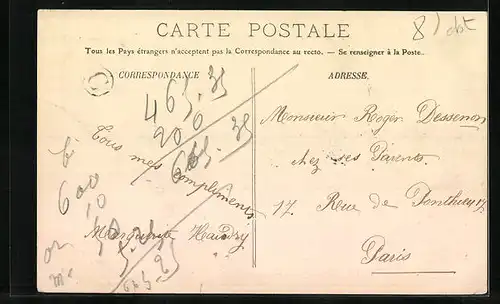 CARTE POSTALE
8 / obt
Tous les Pays étrangers n'acceptent pas la Correspondance au recto. — Se renseigner à la Poste.
C
CORRESPONDANCE
ADRESSE.
465.35
200
665.35
Tous mes compliments
Marguerite
600
10
Monsieur Roger Dessenon
chez ses Parents
17 Rue de Ponthieu 17.
Paris